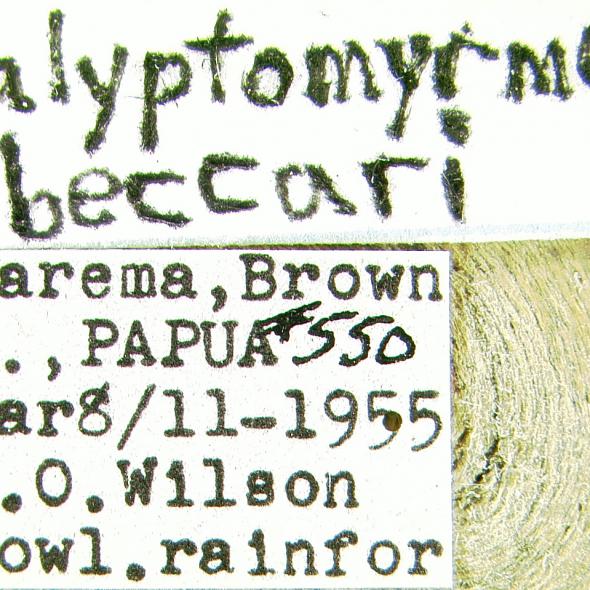 alyptomyrme
beccari
arema, Brown
., PAPUA #550
ar8/11-1955
.O.Wilson
owl.rainfor